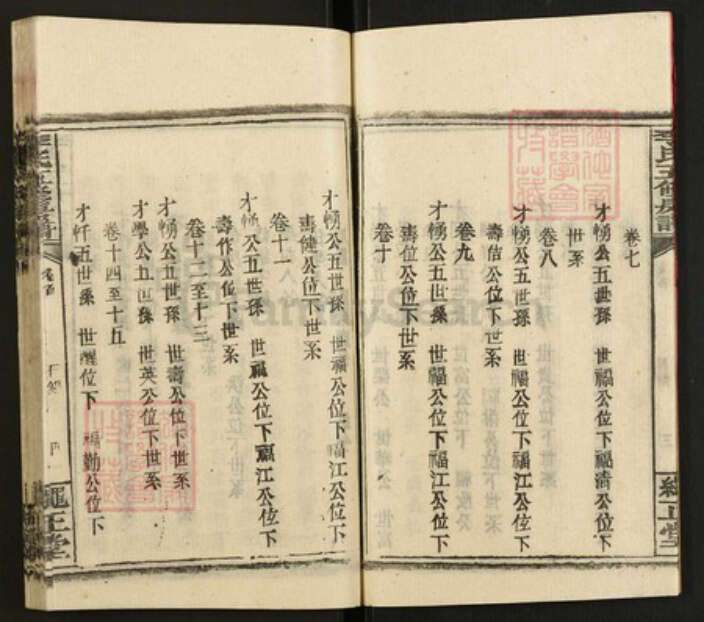 卷七
才㥧公五世孫 世福公位下福清公位下
世系
卷八
才㥧公五世孫 世福公位下福江公位下
壽信公位下世系
卷九
才㥧公五世孫 世福公位下福江公位下
壽位公位下世系
卷十
才㥧公五世孫 世福公位下福江公位下
公位下世系
卷十一
才㥧公五世孫 世福公位下福江公位下
壽作公位下世系
卷十二至十三
才㥧公五世孫 世壽公位下世系
才學公五世孫 世英公位下世系
卷十四至十五
五世孫 位下 福勤公位下
繩正堂